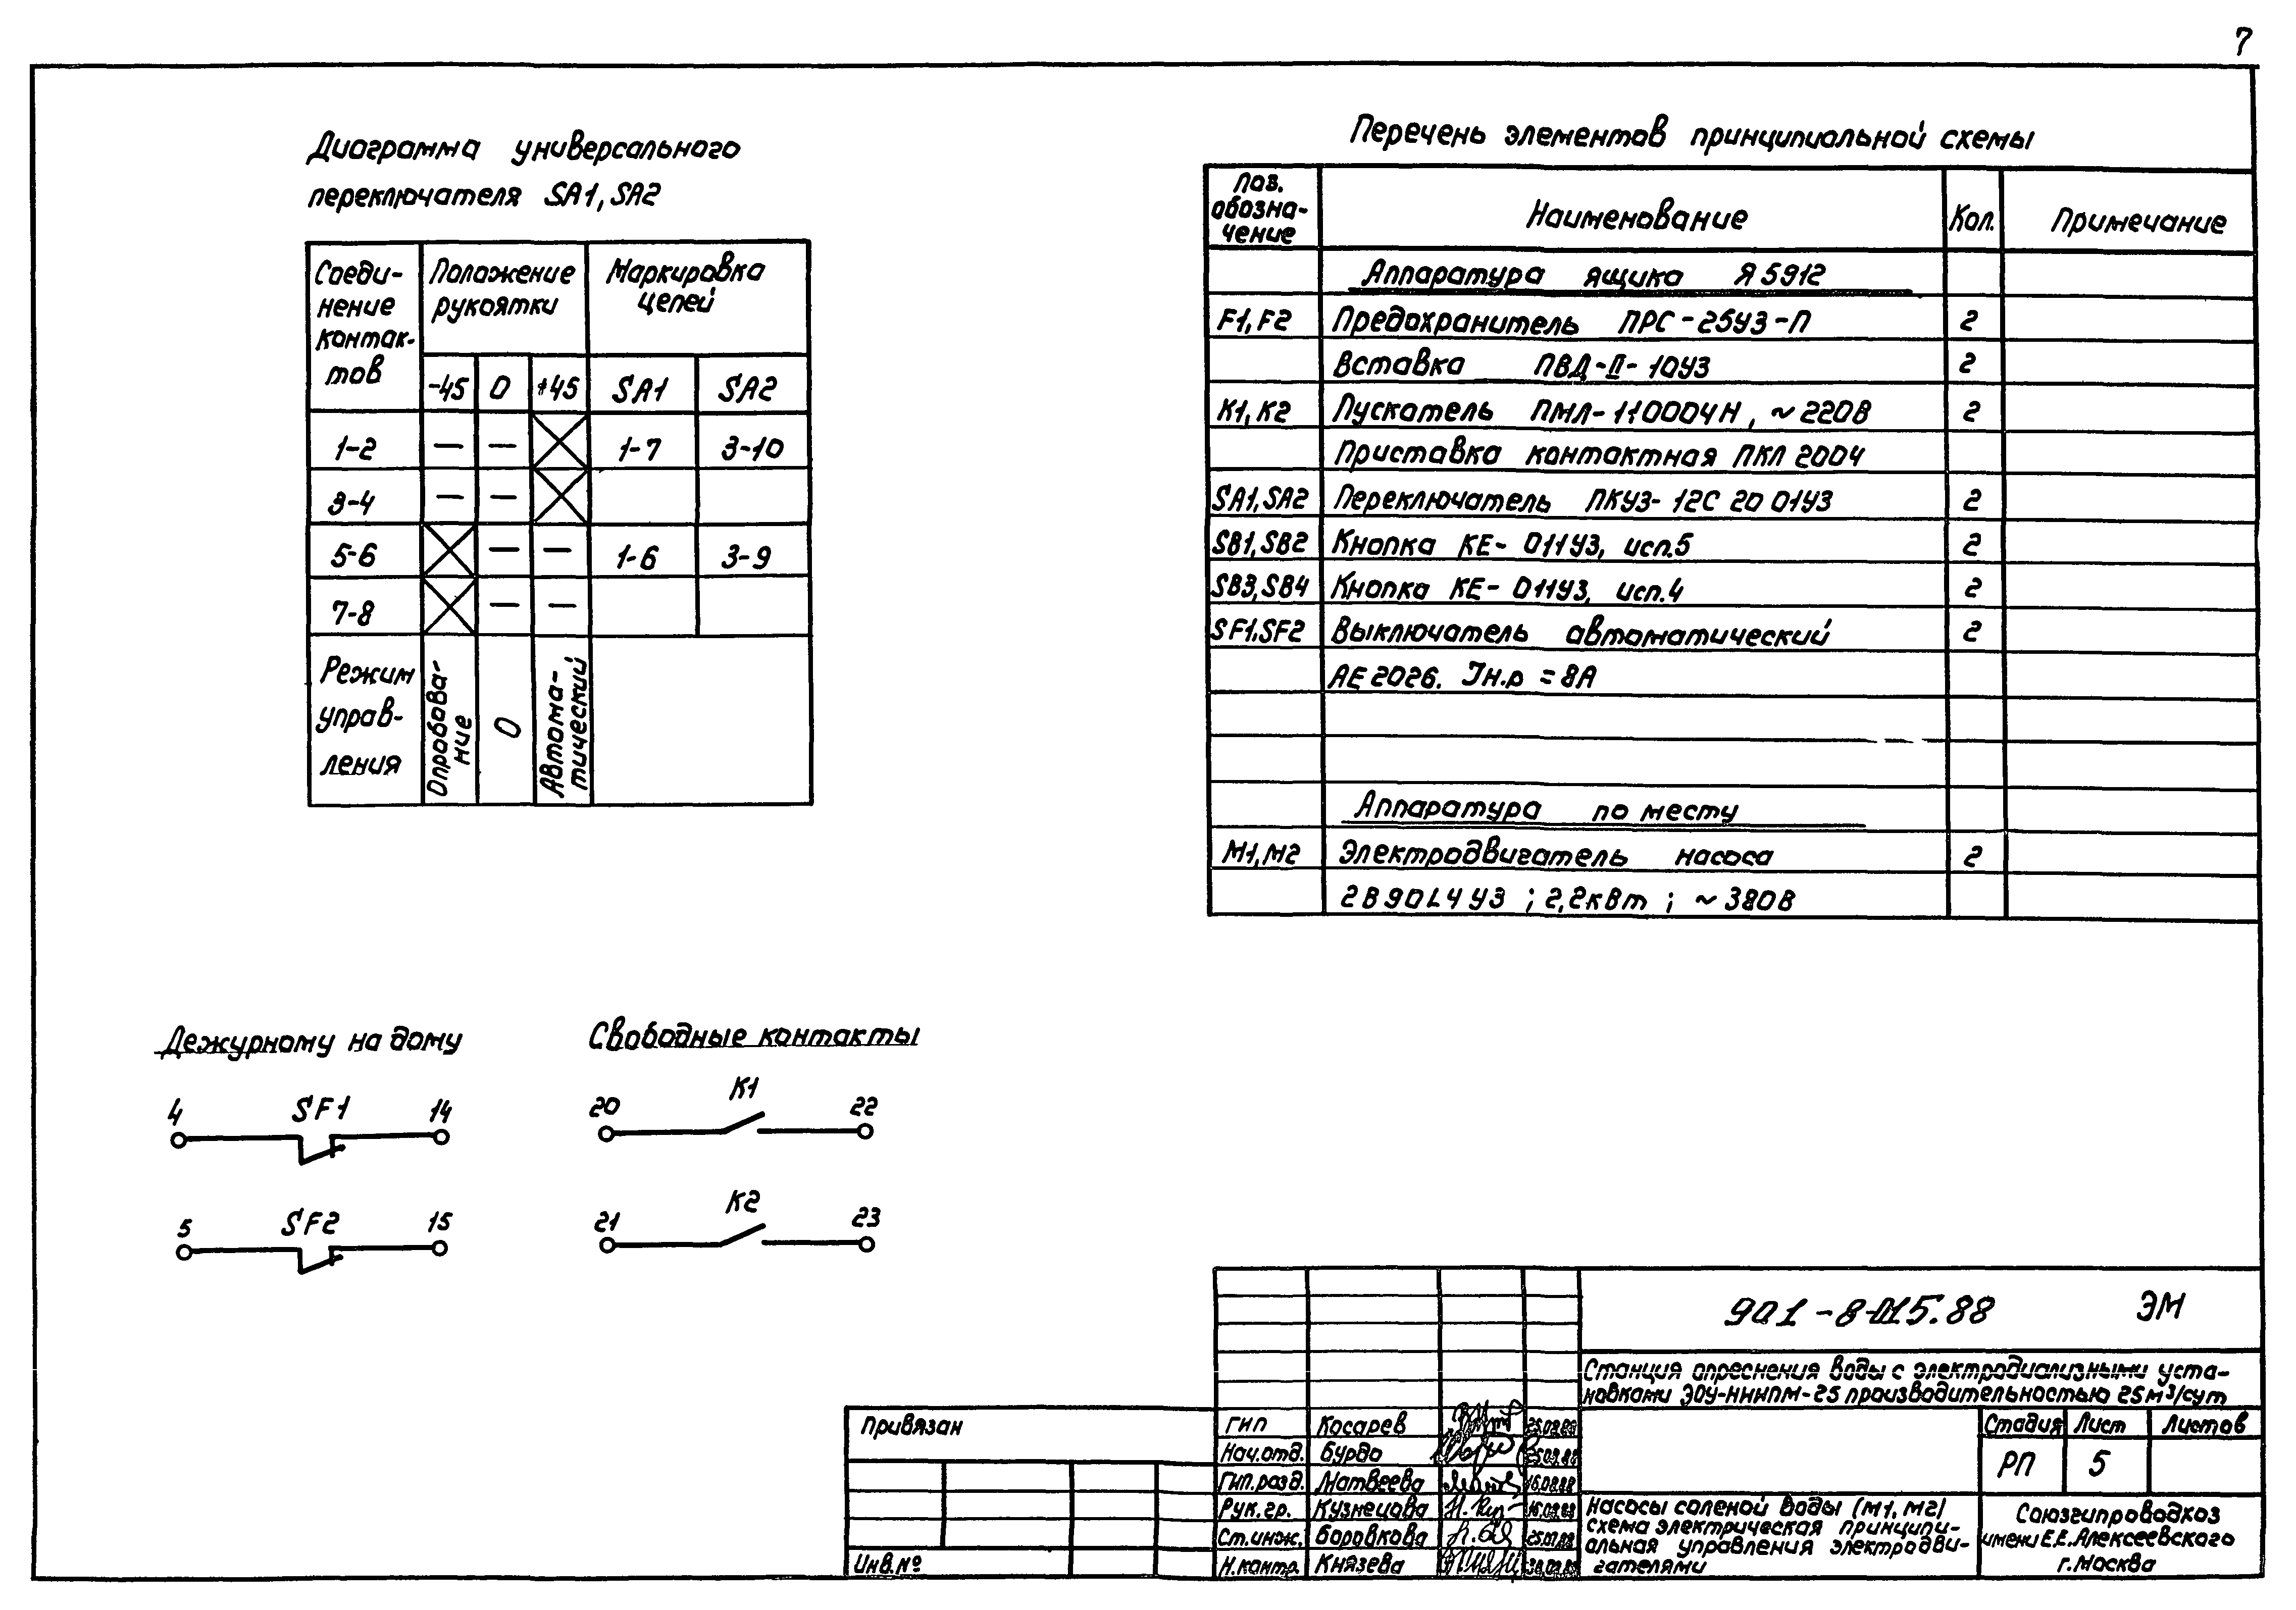 7
Диаграмма универсального
переключателя SA1, SA2
Соеди-
нение
контак-
тов
Положение
рукоятки
Маркировка
цепей
-45 0 +45 SA1 SA2
1-2 — — 1-7 3-10
3-4 — —
5-6 — — 1-6 3-9
7-8 — —
Режим
управ-
ления
Опробова-
ние
0
Автома-
тический
Перечень элементов принципиальной схемы
Поз.
обозна-
чение
Наименование Кол. Примечание
Аппаратура ящика Я5912
F1, F2 Предохранитель ПРС-25У3-П 2
Вставка ПВД-II-10У3 2
K1, K2 Пускатель ПМЛ-110004Н, ~220В 2
Приставка контактная ПКЛ 2004
SA1, SA2 Переключатель ПКУ3-12С 20 01У3 2
SB1, SB2 Кнопка КЕ-011У3, исп.5 2
SB3, SB4 Кнопка КЕ-011У3, исп.4 2
SF1, SF2 Выключатель автоматический 2
АЕ2026. Iн.р = 8А
Аппаратура по месту
М1, М2 Электродвигатель насоса 2
2В90L4У3 ; 2,2кВт ; ~380В
Дежурному на дому
4 SF1 14
5 SF2 15
Свободные контакты
20 K1 22
21 K2 23
901-8-015.88 ЭМ
Станция опреснения воды с электродиализными уста-
новками ЭОУ-НИИПМ-25 производительностью 25м³/сут
Привязан
Инв.№
ГИП Косарев
Нач.отд. Бурдо
Гип.разд. Матвеева 16.08.88
Рук.гр. Кузнецова
Ст.инж. Боровкова
Н.контр. Князева
Стадия Лист Листов
РП 5
Насосы соленой воды (М1, М2)
схема электрическая принципи-
альная управления электродви-
гателями
Союзгипроводхоз
имени Е.Е.Алексеевского
г.Москва